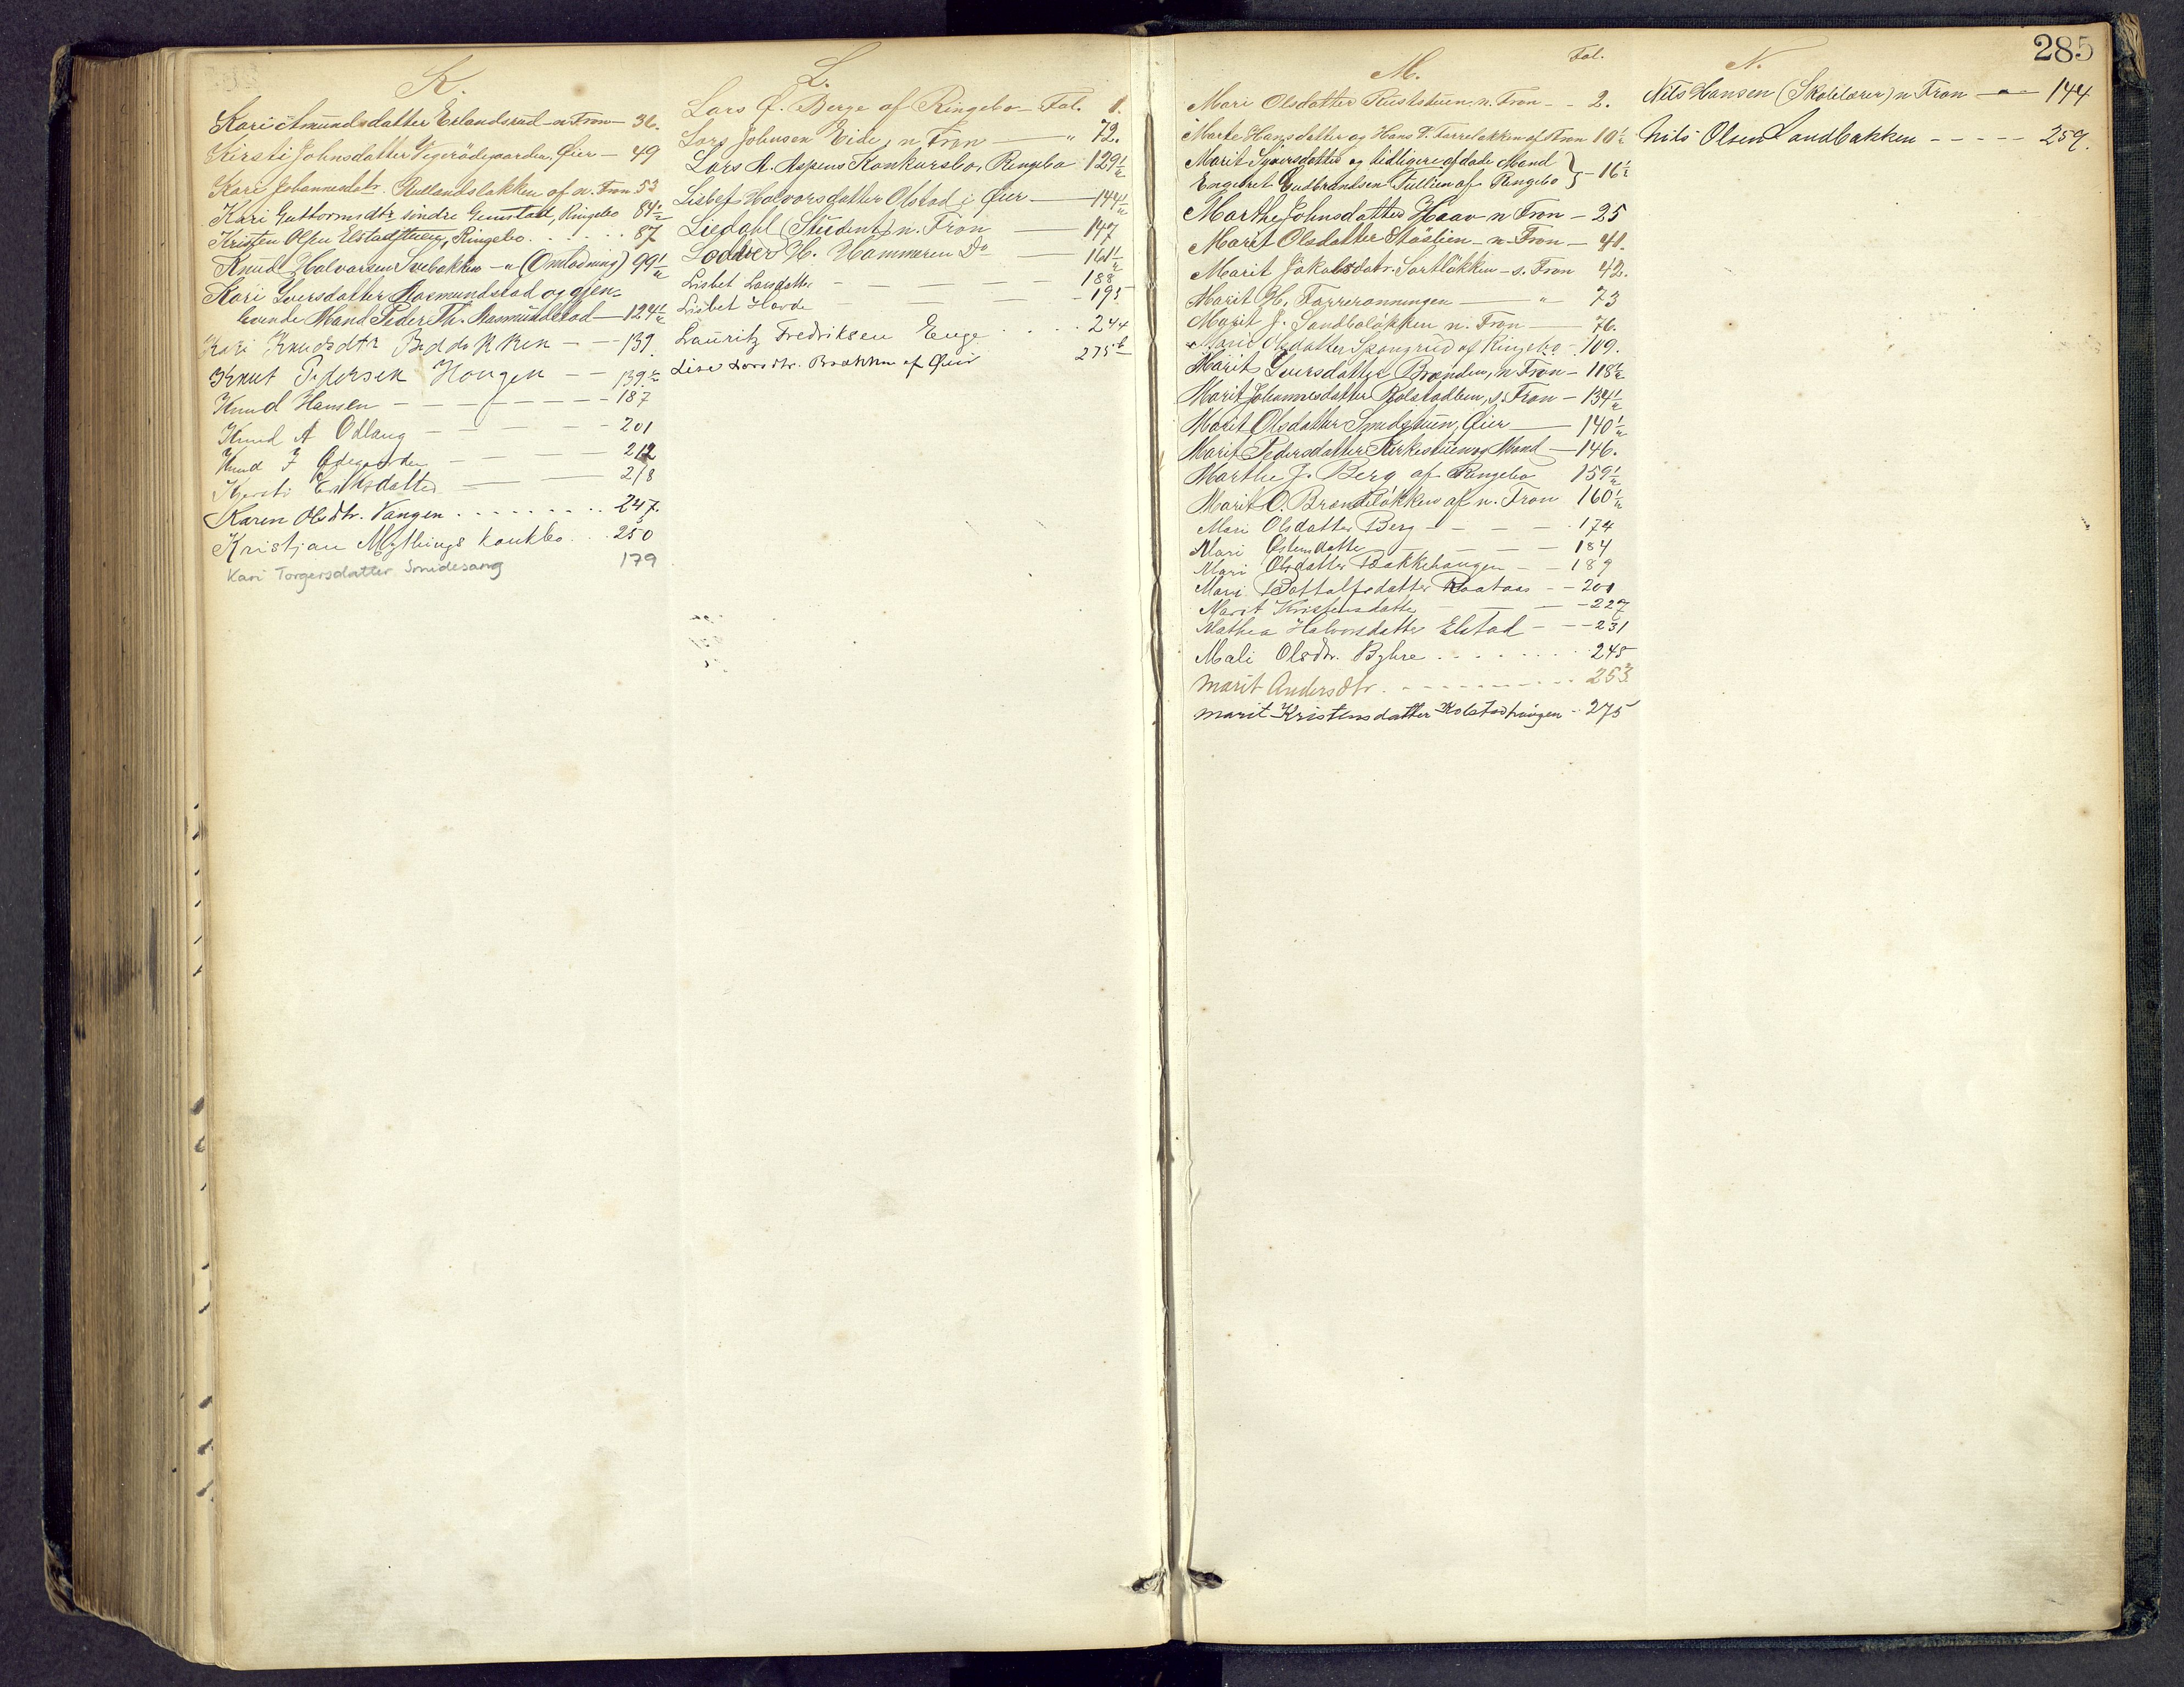 K.
Kari Amundsdatter Erlandsrud n. Fron – 36.
Kirsti Johnsdatter Øier – 49
Kari Johannesdatr. af n. Fron 53
Kari Guttormsdtr Ringebo 84 1/2
Kristen Olsen Elstadstuen, Ringebo . . . . . . 87
Knud Halvorsen Svebakken – (Omlodning) 99 1/2
Kari Iversdatter Rasmundstad og gjen-
levende Mand Peder Th. Rasmundstad – 124 1/2
Kari Knudsdtr – – 139.
Knut Pedersen Hougen – – 139 1/2
Knud Hansen – – – – – – – 187
Knud A Odlaug – – – – 201
Knud J Ødegaarden – – – 212
Kjersti Eriksdatter – – – 218
Karen Olsdtr. Vangen . . . . . . . . . 247.
Kristjan Mythings konkbo . . 250
Kari Torgersdatter Smidesang 179
L.
Lars Berge af Ringebo – Fol. 1.
Lars Johnsen Eide, n. Fron – " 72.
Lars A. Aspens Konkursbo, Ringebo 129 1/2
Lisbet Halvorsdatter Olstad i Øier – 144 1/2
Liedahl (Student) n. Fron – 147
Lodver H. Hammeren Do – 161 1/2
Lisbet Larsdatter – – – 188
Lisbet Harde – 195
Lauritz Fredriksen Enge . . . . 244
Lise Larsdtr. Brækken af Øier 275 b
285
M. Fol.
Mari Olsdatter Ruststuen, n. Fron – – 2.
Marte Hansdatter og Hans af Fron 10 1/2
Marit Syversdatter og tidligere afdøde Mand
Engebret Gudbrandsen Tullien af Ringebo } – 16 1/2
Marthe Johnsdatter Haav n Fron – 25
Marit Olsdatter Stöslien – n. Fron – 41.
Marit Jakobsdatr. Sortløkken – s. Fron 42.
Marit H. – " – 73
Marit J. Sandboløkken n. Fron – 76.
Marie Olsdatter Spangrud af Ringebo – 109.
Marit Iversdatter Brænden, n. Fron – 118 1/2
Marit Johannesdatter Kolstadben, s. Fron – 134 1/2
Marit Olsdatter Smedstuen, Øier – 140 1/2
Marit Pedersdatter Kirkestuen og Mand – 146.
Marthe J. Berg af Ringebo 159 1/2
Marit O. Brændeløkken af n. Fron 160 1/2
Mari Olsdatter Berg – – – – 174
Mari Østensdatter – – – 184
Mari Olsdatter Bakkehaugen – – 189
Mari Bottolfsdatter Raataas – – 201
Marit Kristensdatter – – – 227
Mathea Halvorsdatter Elstad – – – 231
Mali Olsdtr. Byhre . . . . . . . . 245
Marit Andersdtr. – – – – – – – – – 253
Marit Kristensdatter Kolstadhaugen – 275
N.
Nils Hansen (Skolelærer) n. Fron – " – 144
Nils Olsen Sandbakken – – – – – 259.